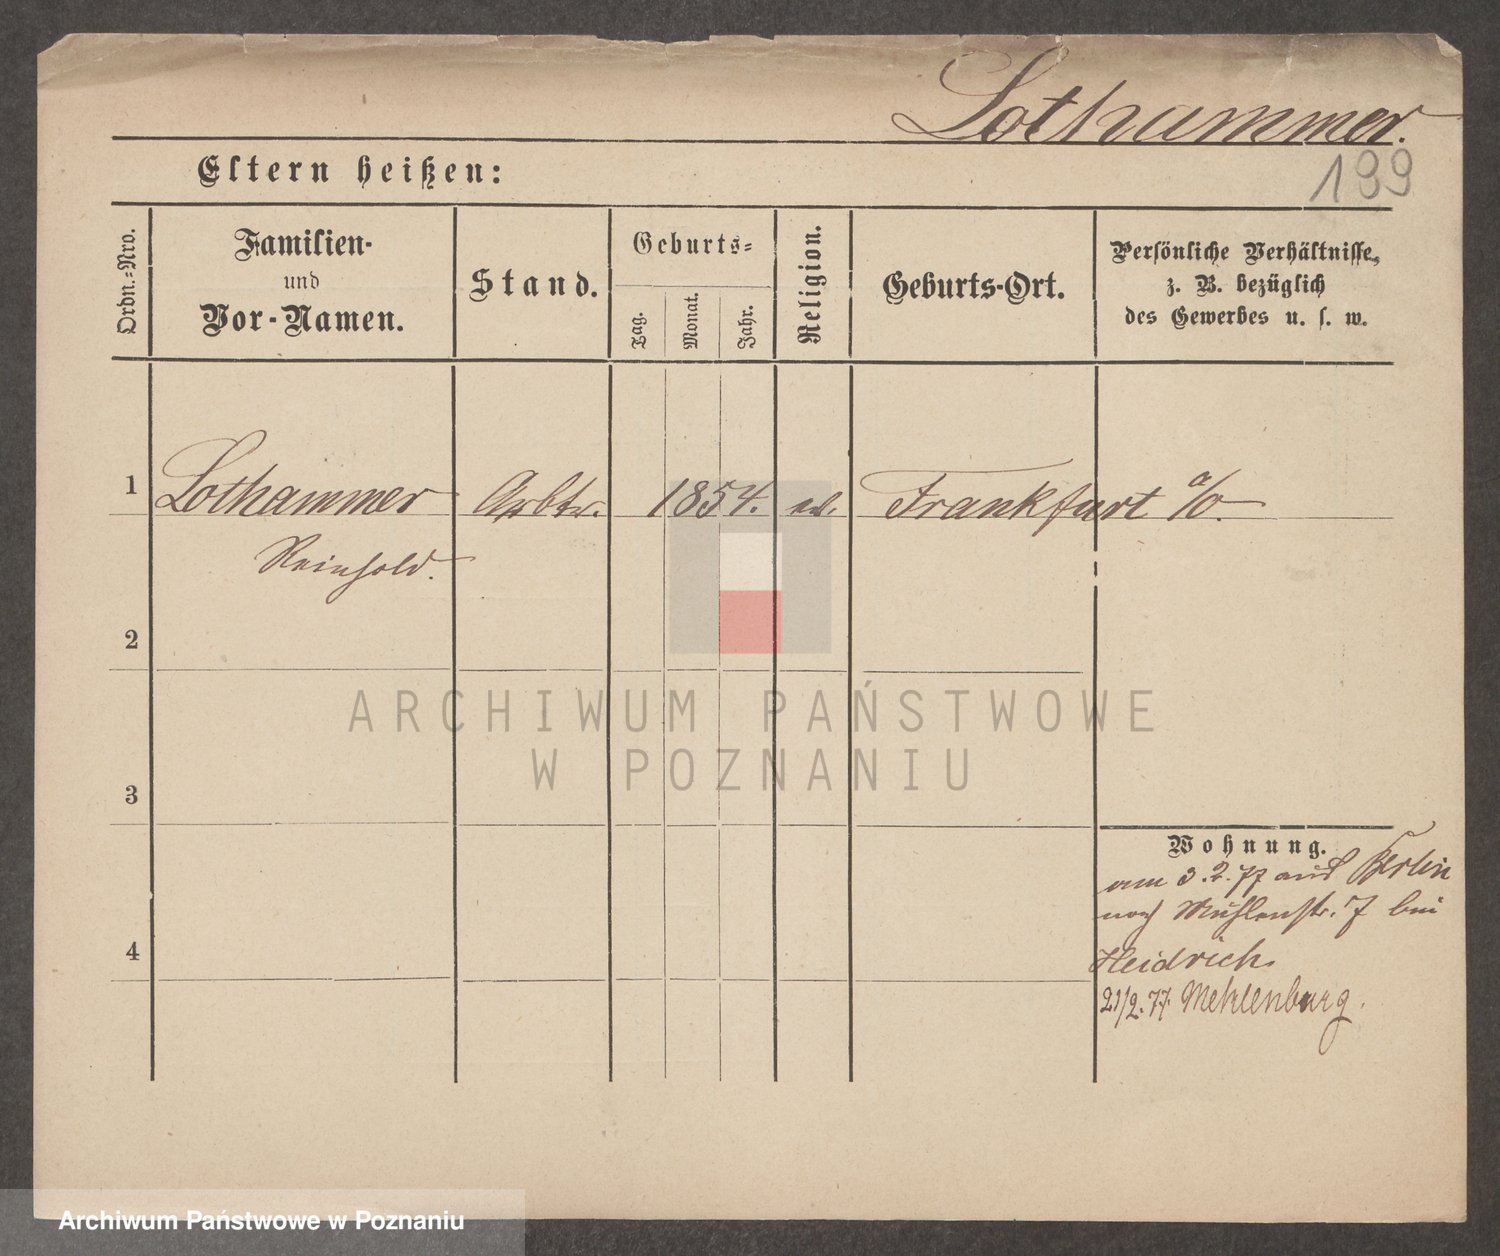 Lothammer.
199
Eltern heißen:
Ordn.-Nro.
Familien-
und
Vor-Namen.
Stand.
Geburts-
Tag.
Monat.
Jahr.
Religion.
Geburts-Ort.
Persönliche Verhältnisse,
z. B. bezüglich
des Gewerbes u. s. w.
1
Lothammer Arbtr. 1854. ev. Frankfurt a/O.
Reinhold.
2
3
4
Wohnung.
am 3.2.77 aus Berlin
nach Mühlenstr. 7 bei
Heidrich.
21/2.77. Meklenburg.
ARCHIWUM PAŃSTWOWE
W POZNANIU
Archiwum Państwowe w Poznaniu